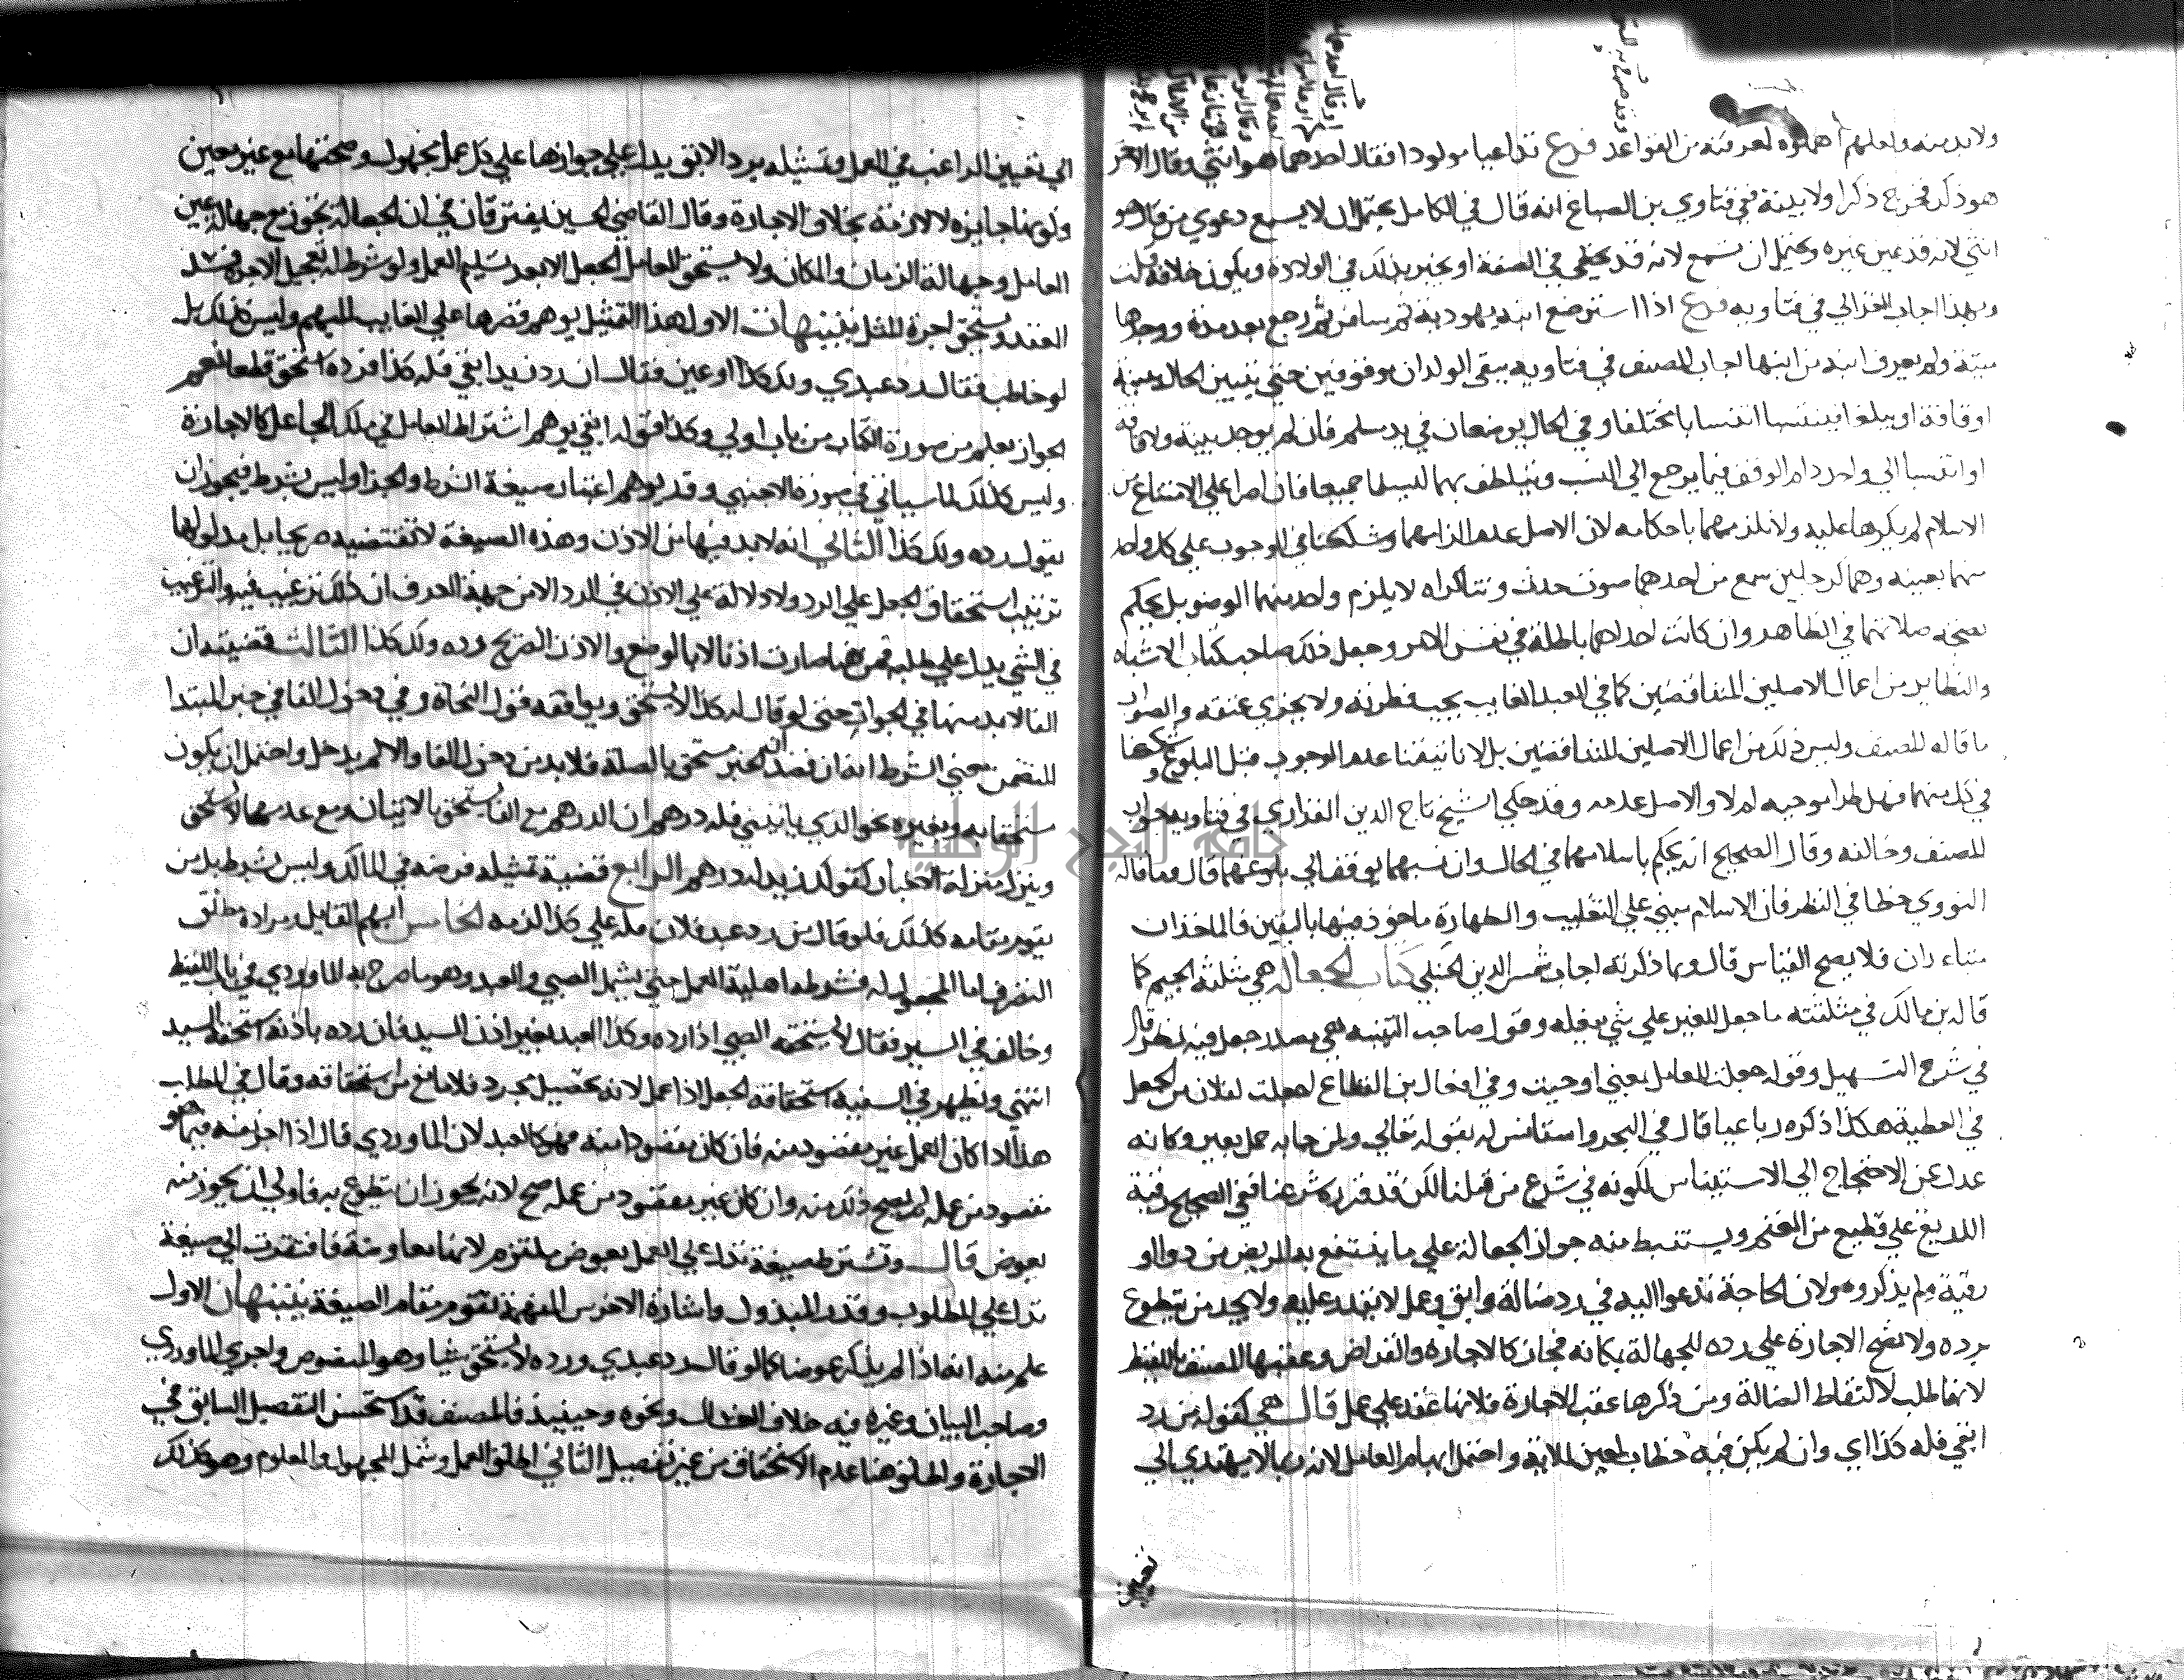 ولا بد منه ولعلهم أهملوه لمعرفته من القواعد فرع تداعيا مولودا فقال احدهما هو انثي وقال الاخر
هو ذكر فخرج ذكرا ولا بينة ففي فتاوي بن الصباغ انه قال في الكامل يحتمل ان لا يسمع دعوي من قال هو
انثي لانه قد عين غيره ويحتمل ان تسمع لانه قد يخطي في الصفة او يخبر بذلك في الولادة ويكون خلافه قلت
وبهذا اجاب الغزالي في فتاويه فرع اذا استرضع ابنه يهودية ثم سافر ثم رجع بعد مدة ووجدها
ميتة ولم يعرف ابنه من ابنها اجاب المصنف في فتاويه يبقي الولدان موقوفين حتي يتبين الحال ببينة
او قافة او يبلغا فينتسبا انتسابا مختلفا وفي الحال يوضعان في يد مسلم فان لم يوجد بينة ولا قافة
او انتسبا الي واحد دام الوقف فيما يرجع الي النسب ويتلطف بهما ليسلما جميعا فان اصرا علي الامتناع من
الاسلام لم يكرها عليه ولا نلزمهما باحكامه لان الاصل عدم الزامهما وشككنا في الوجوب علي كل واحد
منهما بعينه وهما كرجلين سمع من احدهما صوت حدث وتناكراه لا يلزم واحد منهما الوضو بل يحكم
بصحة صلاتهما في الظاهر وان كانت احداهما باطلة في نفس الامر وجعل ذلك صاحب كتاب الاشباه
والنظاير من اعمال الاصلين المتناقضين كما في العبد الغايب يجب فطرته ولا يجزي عتقه والصواب
ما قاله المصنف وليس ذلك من اعمال الاصلين المتناقضين بل لانا تيقنا عدم الوجوب قبل البلوغ وشككنا
في كل منهما فهل طرا موجبه ام لا والاصل عدمه وقد حكي الشيخ تاج الدين الفزاري في فتاويه جواب
المصنف وخالفه وقال الصحيح انه يحكم باسلامهما في الحال وان نسبهما يوقف الي بلوغهما قال وما قاله
النووي خطا في النظر فان الاسلام مبني علي التغليب والطهارة ماخوذ فيها باليقين فالماخذان
متباعدان فلا يصح القياس قال وبما ذكرته اجاب شمس الدين الحنبلي كتاب الجعالة هي مثلثة الجيم كما
قاله بن مالك في مثلثته ما جعل للغير علي شي يفعله وقول صاحب التنبيه هي مصدر جعل فيه نظر قال
في شرح التسهيل وقوله جعلت للعامل بمعني اوجبت وفي افعال بن القطاع اجعلت لفلان من الجعل
في العطية هكذا ذكره رباعيا قال في البحر واستانس له بقوله تعالي ولمن جا به حمل بعير وكانه
عدل عن الاحتجاج الي الاستيناس لكونه في شرع من قبلنا لكن قد قرره شرعنا ففي الصحيح رقية
اللديغ علي قطيع من الغنم ويستنبط منه جواز الجعالة علي ما ينتفع به المريض من دوا او
رقية ولم يذكروه ولان الحاجة تدعوا اليه في رد ضالة وابق وعمل لا يقدر عليه ولا يجد من يتطوع
برده ولا تصح الاجارة علي رده للجهالة بمكانه فجاز كالاجارة والقراض وعقبها المصنف باللقيط
لانها طلب لالتقاط الضالة ومن ذكرها عقب الاجارة فلانها عقد علي عمل قال هي كقوله من رد
ابقي فله كذا اي وان لم يكن فيه خطاب لمعين للابق واحتمل ابهام العامل لانه ربما لا يهتدي الي
تعيين
الي تعيين الراغب في العمل وتمثيله برد الابق يدل علي جوازها علي كل عمل مجهول وصحتها مع غير معين
وكونها جايزة لا لازمة بخلاف الاجارة وقال القاضي الحسين يفترقان في ان الجعالة تجوز مع جهالة عين
العامل وجهالة الزمان والمكان ولا يستحق العامل الجعل الا بعد تسليم العمل ولو شرط له تعجيل الاجرة فسد
العقد ويستحق اجرة المثل تنبيهات الاول هذا التمثيل يوهم قصرها علي الغايب المبهم وليس كذلك بل
لو خاطب فقال رد عبدي ولك كذا او عين فقال ان رد زيد ابقي فله كذا فرده استحق قطعا نعم
الجواز يعلم من صورة الكتاب من باب اولي وكذا قوله ابقي يوهم اشتراط العامل في ملك الجاعل كالاجارة
وليس كذلك لما سياتي في صورة الاجنبي وقد يوهم اعتبار صيغة الشرط والجزا وليس بشرط فيجوز ان
يقول رده ولك كذا الثاني انه لا بد فيها من الاذن وهذه الصيغة لا تقتضيه صريحا بل مدلولها
ترتيب استحقاق الجعل علي الرد ولا دلالة علي الاذن في الرد الا من جهة العرف ان ذلك ترغيب فيه والترغيب
في الشي يدل علي طلبه فمن هنا صارت اذنا لا بالوضع والاذن الصريح رده ولك كذا الثالث قضيته ان
الفا لا بد منها في الجواب حتي لو قال له كذا لا يستحق ويوافقه قول النحاة وفي دخول الفا في خبر المبتدا
المتضمن معني الشرط انه ان قصد ان الخبر مستحق بالصلة فلا بد من دخول الفا والا لم يدخل واحتمل ان يكون
مستحقا به وبغيره نحو الذي ياتيني فله درهم ان الدرهم مع الفا يستحق بالاتيان ومع عدمها لا يستحق
وينزل منزلة الاخبار كقولك زيد له درهم الرابع قضية تمثيله فرضه في المالك وليس بشرط بل من
يقوم مقامه كذلك فلو قال من رد عبد فلان فله علي كذا لزمه الخامس ابهم القايل ومراده مطلق
التصرف اما المجعول له فشرطه اهلية العمل حتي يشمل الصبي والعبد وهو ما صرح به الماوردي في باب اللقيط
وخالف في السير فقال لا يستحقه الصبي اذا رده وكذا العبد بغير اذن السيد فان رده باذنه استحقه السيد
انتهي ويظهر في السفيه استحقاقه الجعل اذا عمل لانه تحصيل مجرد فلا مانع من استحقاقه وقال في المطلب
هذا اذا كان العمل غير مقصود منه فان كان مقصودا منه فهو كالعبد لان الماوردي قال اذا اجر نفسه فيما هو
مقصود من عمله لم يصح ذلك منه وان كان غير مقصود من عمله صح لانه يجوز ان يتطوع به فاولي ان يجوز منه
بعوض قال وتشترط صيغة تدل علي العمل بعوض ملتزم لانها معاوضة فافتقرت الي صيغة
تدل علي المطلوب وقدر المبذول واشارة الاخرس المفهمة تقوم مقام الصيغة تنبيهان الاول
علم منه انه اذا لم يذكر عوضا كما لو قال رد عبدي ورده لا يستحق شيا وهو المنصوص واجري الماوردي
وصاحب البيان وغيره فيه خلاف الغسال ونحوه وحينيذ فالمصنف قد استحسن التفصيل السابق في
الاجارة واطلق هنا عدم الاستحقاق من غير تفصيل الثاني اطلق العمل وشمل المجهول والمعلوم وهو كذلك